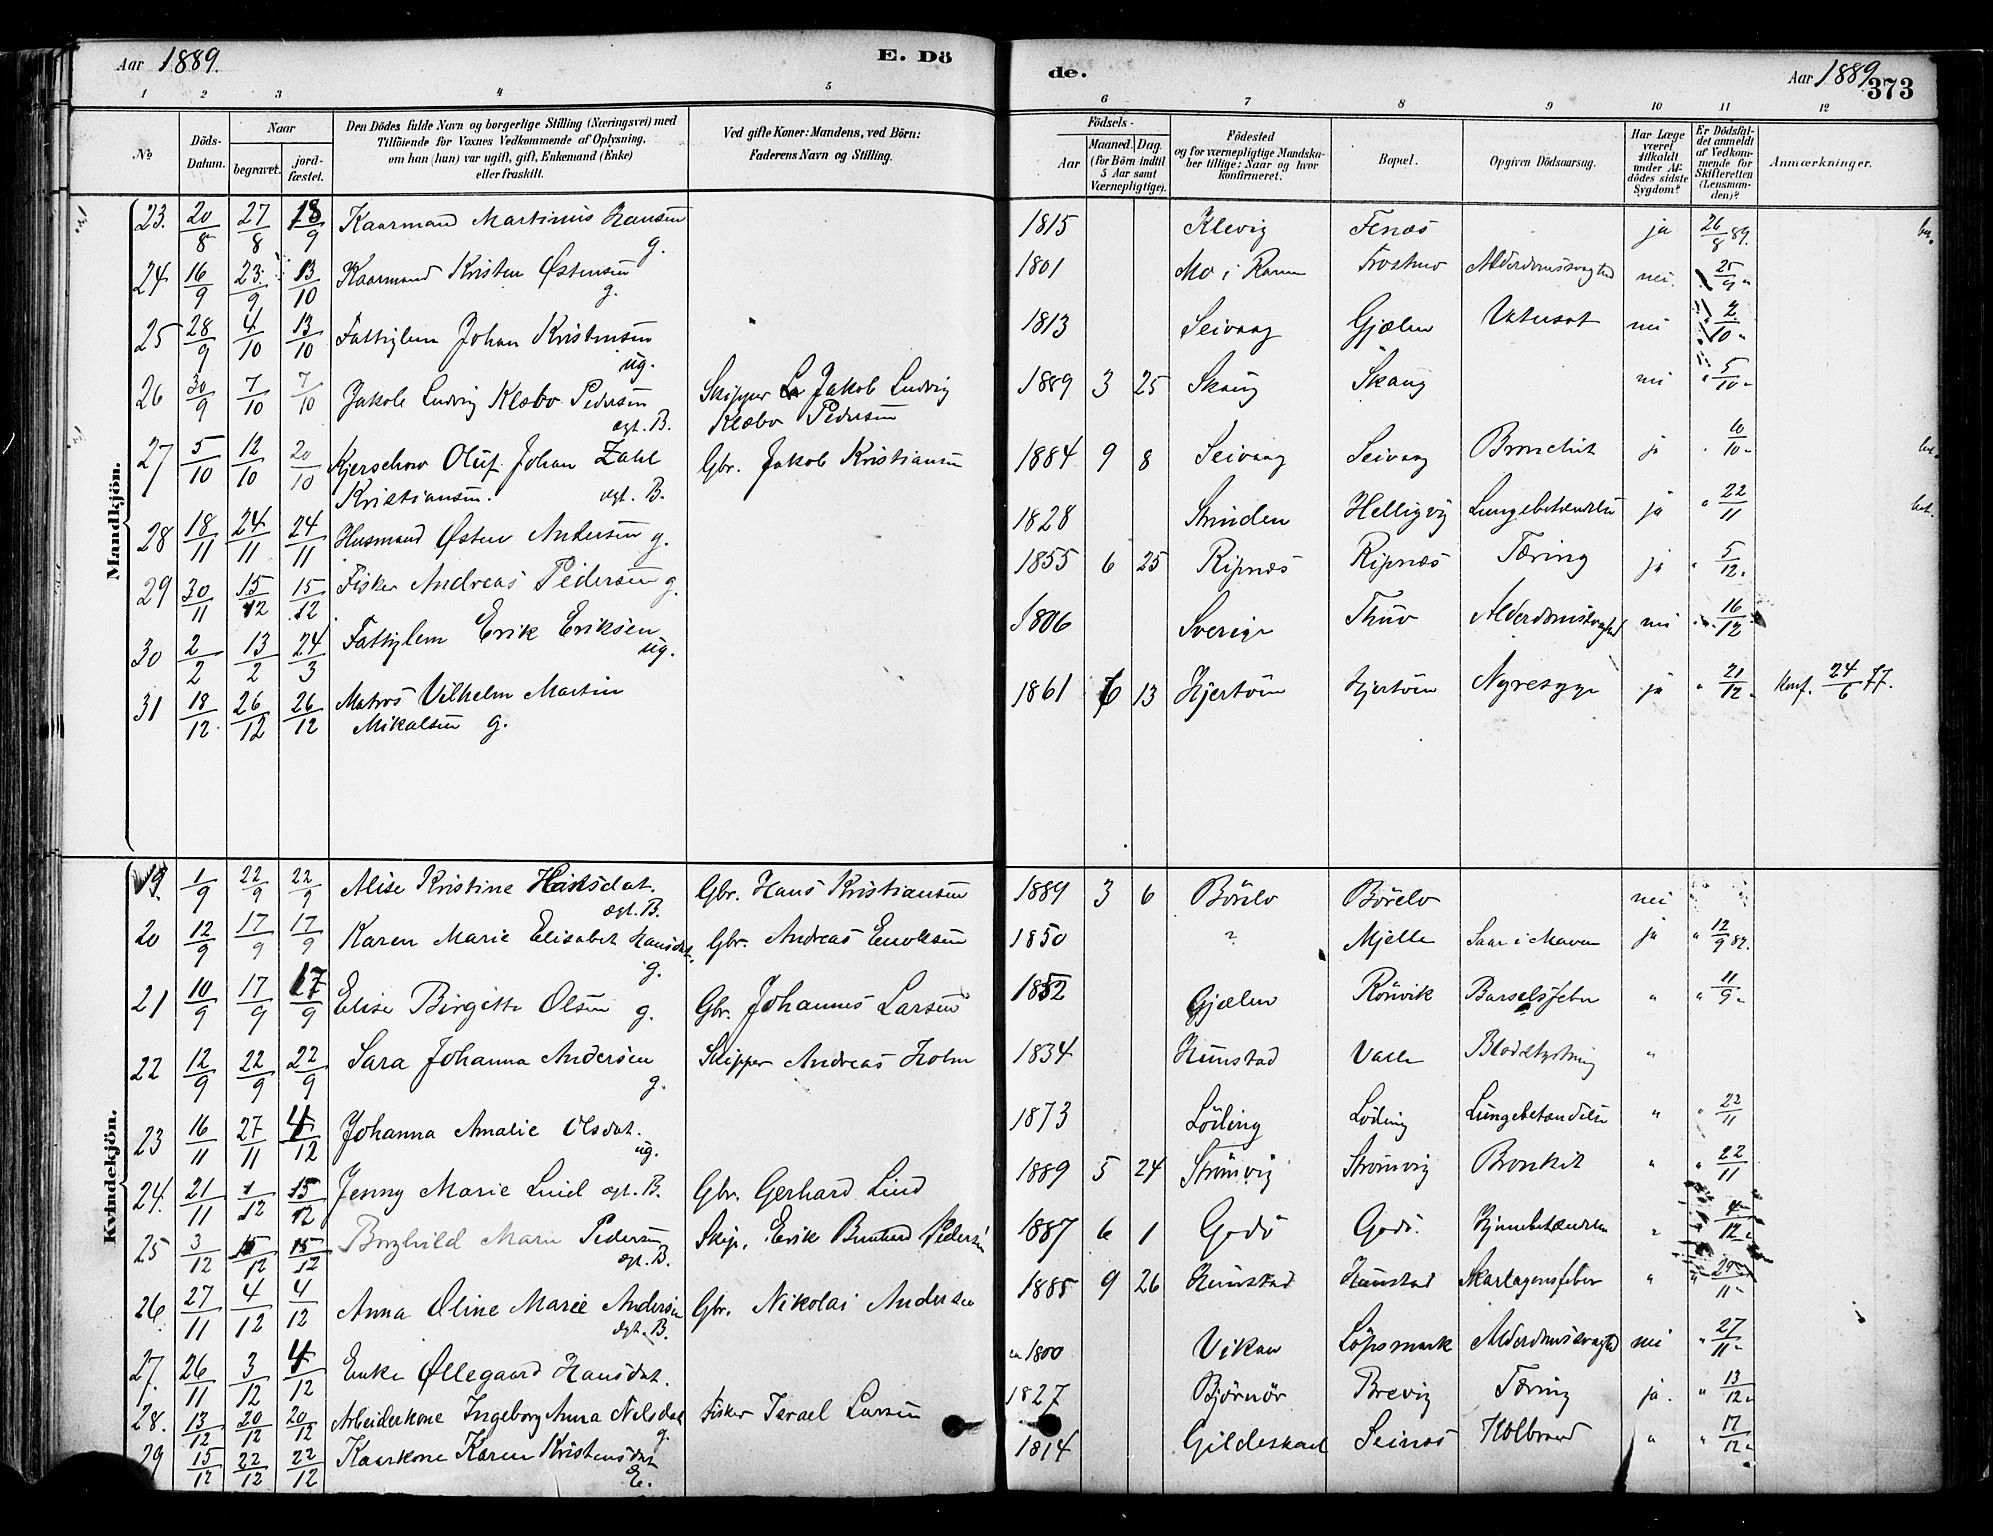 Aar 1889.
E. Dö
de.
Aar 1889
373
1 2 3 4 5 6 7 8 9 10 11 12
No
Döds-
Datum.
Naar
begravet.
jord-
fæstet.
Den Dödes fulde Navn og borgerlige Stilling (Næringsvei) med
Tilföiende for Voxnes Vedkommende af Oplysning,
om han (hun) var ugift, gift, Enkemand (Enke)
eller fraskilt.
Ved gifte Koner: Mandens, ved Börn:
Faderens Navn og Stilling.
Födsels-
Aar
Maaned. Dag.
(for Börn indtil
5 Aar samt
Værnepligtige).
Födested
og for værnepligtige Mandska-
ber tillige: Naar og hvor
konfirmeret.
Bopæl.
Opgiven Dödsaarsag.
Har Læge
været
tilkaldt
under Af-
dödes sidste
Sygdom?
Er Dödsfal-
det anmeldt
af Vedkom-
mende for
Skifteretten
(Lensman-
den)?
Anmærkninger.
Mandkjön.
23. 20/8 27/8 18/9 Kaarmand Martinus Hansen g. 1815 Klevig Fenes ja 26/8 89.
24 16/9 23/9 13/10 Kaarmand Kristen Østensen g. 1801 Mo i Ranen Alderdomssvaghed nei. 25/9 "
25 28/9 4/10 13/10 Fattiglem Johan Kristensen ug. 1813 Seivaag Gjælen nei 2/10 "
26 30/9 7/10 7/10 Jakob Ludvig Klæbo Pedersen ægt. B. Skipper Jakob Ludvig
Klæbo Pedersen 1889 3 25 Skaug Skaug nei " 5/10 "
27 5/10 12/10 20/10 Kjerschow Oluf Johan Zahl
Kristiansen. ægt. B. Gbr. Jakob Kristiansen 1884 9 8 Seivaag Seivaag Bronchit ja " 10/10 "
28 18/11 24/11 24/11 Husmand Østen Andersen g. 1828 Strinden Helligvig Lungebetændelse ja " 22/11
29 30/11 15/12 15/12 Fisker Andreas Pedersen g. 1855 6 25 Ripnes Ripnæs Tæring ja " 5/12 "
30 2/2 13/2 24/3 Fattiglem Erik Eriksen ug. 1806 Sverige Thuv Alderdomssvaghed nei 16/12
31 18/12 26/12 26/12 Matros Vilhelm Martin
Mikalsen g. 1861 6 13 Hjertøen Hjertøen Nyresyge ja " 21/12 " konf. 24/6 77.
Kvindekjön.
19. 1/9 22/9 22/9 Alise Kristine Hansdat. ægt. B. Gbr. Hans Kristiansen 1889 3 6 Börelv Börelv nei
20 12/9 17/9 17/9 Karen Marie Elisabet Hansdat. g. Gbr. Andreas Enoksen 1850 ? Mjelle Saar i Maven ja " 12/9 89.
21 10/9 17/9 17/9 Elise Birgitte Olsen g. Gbr. Johannes Larsen 1852 Gjælen Rönvik Barselsfeber " " 11/9 "
22 12/9 22/9 22/9 Sara Johanna Andersen g. Skipper Andreas Holm 1834 Hunstad Valle Blodstyrtning "
23 16/11 27/11 4/12 Johanna Amalie Olsdat. ug. 1873 Löding Löding Lungebetændelse " " 22/11
24. 21/11 1/12 15/12 Jenny Marie Lind ægt. B. Gbr. Gerhard Lind 1889 5 24 Strömvig Strömvig Bronkit " " 22/11
25 3/12 15/12 15/12 Borghild Marie Pedersen ægt. B. Skip. Erik Bernhard Pedersen 1887 6 1 Godö Godö. Hjernebetændelse " 4/12 "
26. 27/11 4/12 4/12 Anna Oline Marie Andersen ægt. B. Gbr. Nikolai Andersen 1885 9 26 Hunstad Hunstad Skarlagensfeber " 11 "
27. 26/11 3/12 4/12 Enke Øllegaard Hansdat. ca 1800 Vikan Löpsmark Alderdomssvaghed nei " 27/11 "
28. 13/12 20/12 20/12 Arbeiderkone Ingeborg Anna Nilsdat g. Fisker Israel Larsen 1827 Björnör Brevig Tæring ja. " 13/12 "
29 15/12 22/12 22/12 Kaarkone Karen Kristensdat E. 1814 Gildeskaal Seines Kolbrand " " 17/12 "